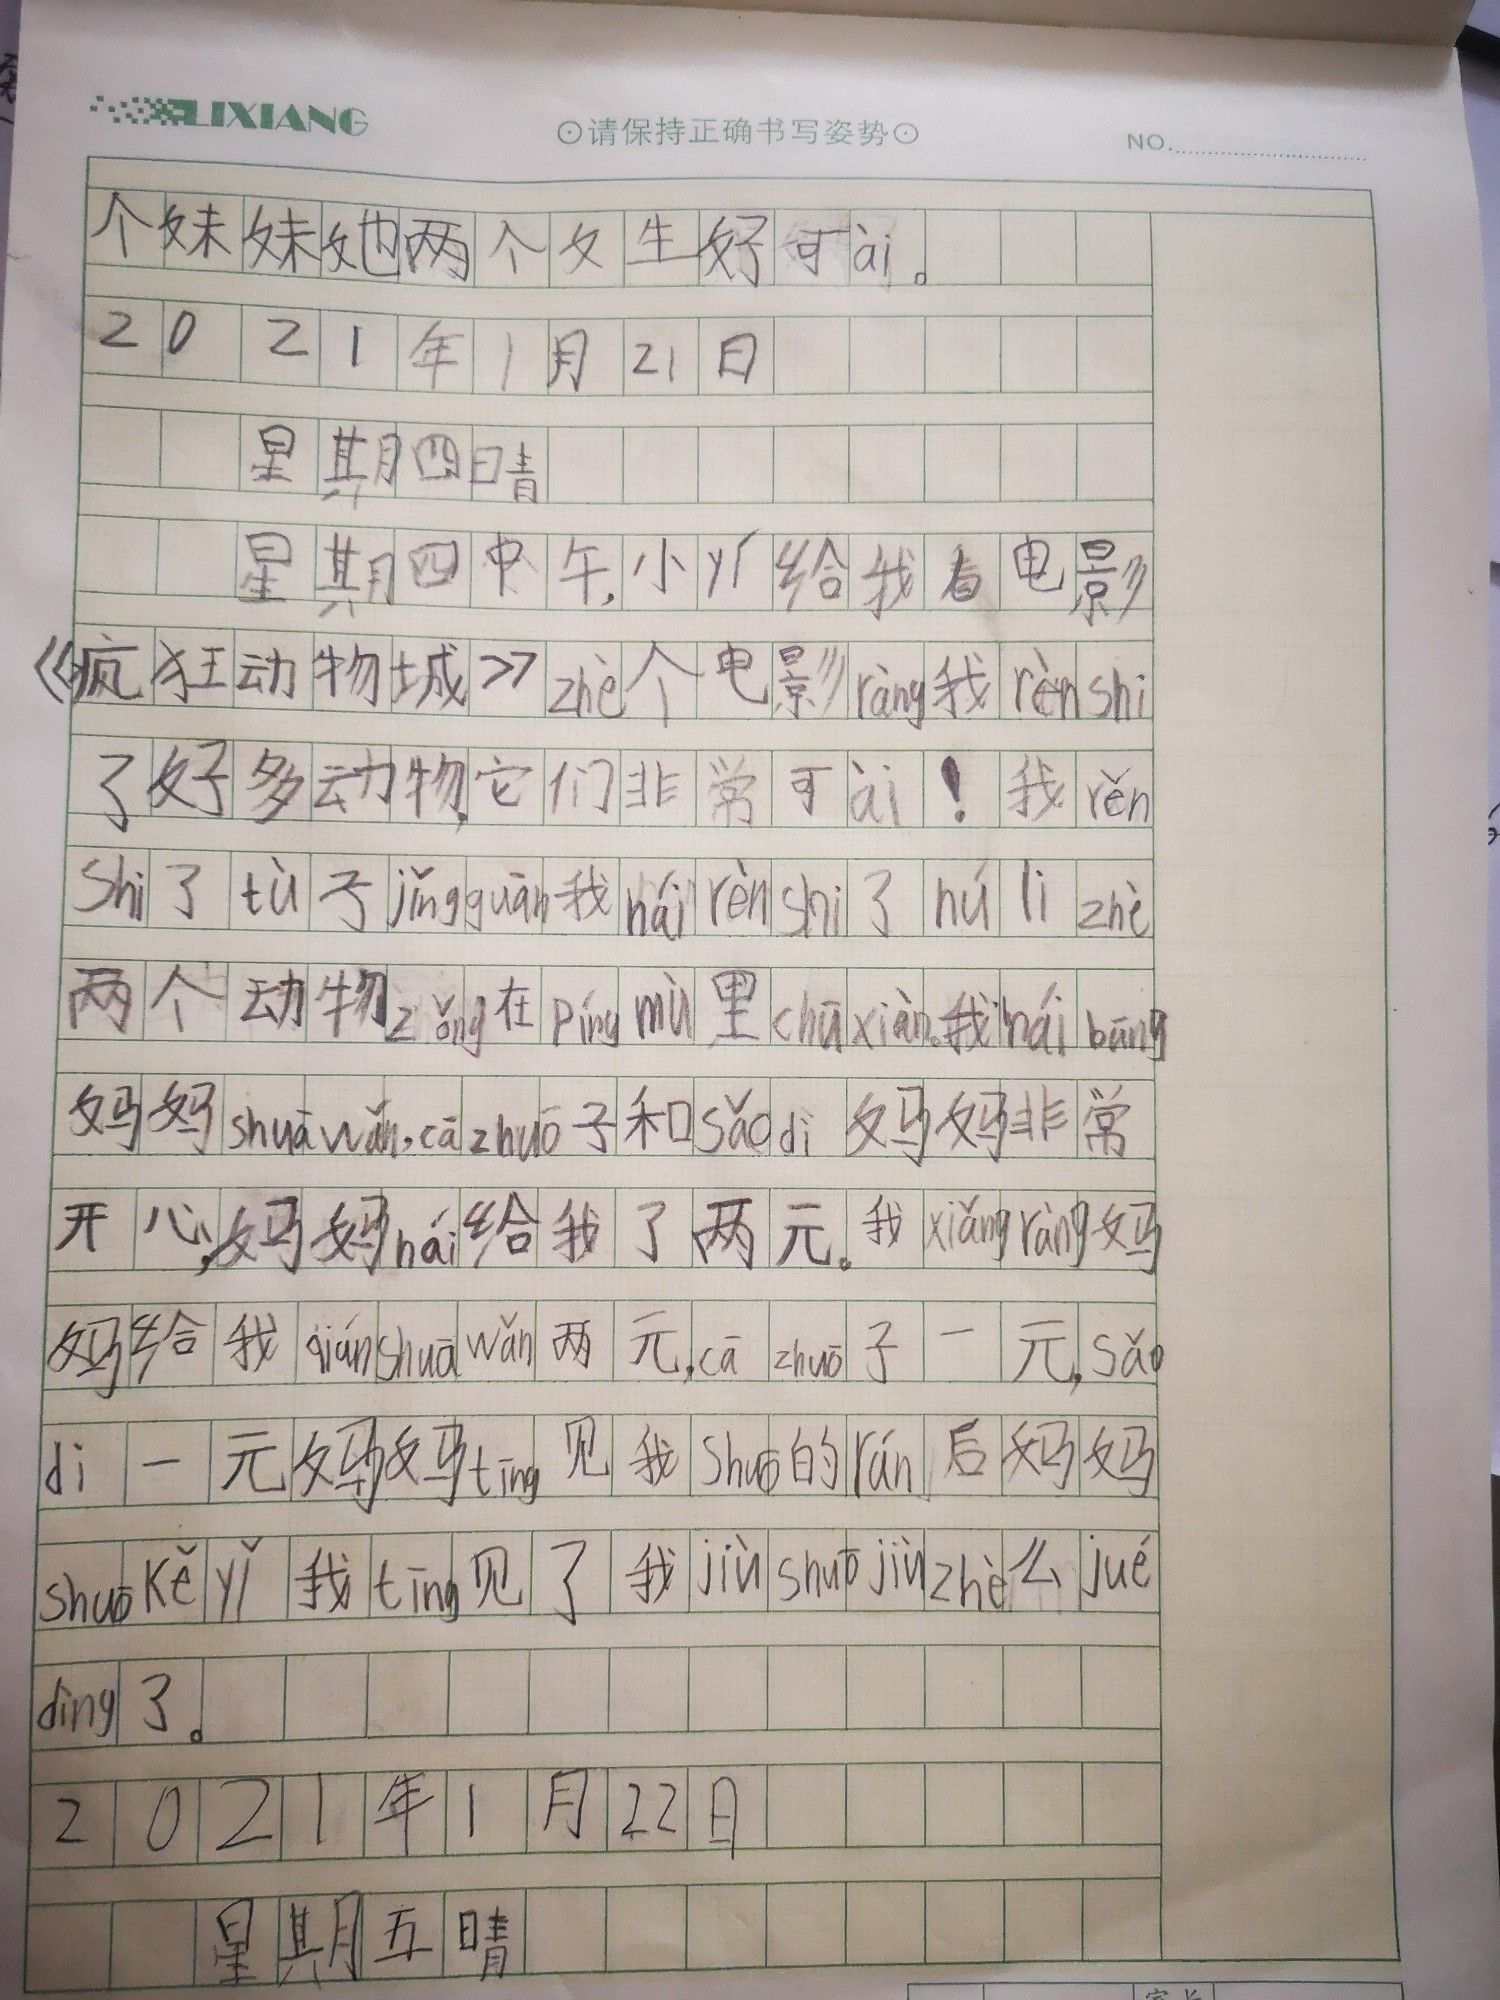 LIXIANG
⊙请保持正确书写姿势⊙
NO
个妹妹她两个女生好可ài。
2021年1月21日
星期四晴
星期四中午,小yí给我看电影
《疯狂动物城》zhè个电影ràng我rènshi
了好多动物,它们非常可ài!我rěn
shi了tù子jǐngguān我hái rènshi了hú li zhè
两个动物zǒng在píng mù里chūxiàn。我hái bāng
妈妈shuāwǎn,cā zhuō子和sǎodì妈妈非常
开心,妈妈hái给我了两元。我xiǎngràng妈
妈给我qiánshuāwǎn两元,cā zhuō子一元,sǎo
dì一元妈妈tīng见我shuō的rán后妈妈
shuōkěyǐ我tīng见了我jiù shuō jiù zhè么jué
dìng了。
2021年1月22日
星期五晴
家长